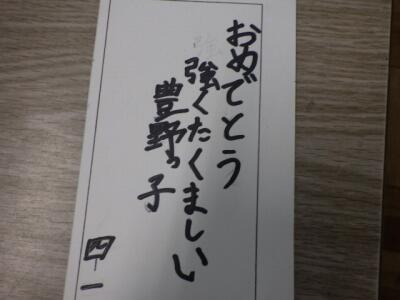 おめでとう
強くたくましい
豊野っ子
四一一